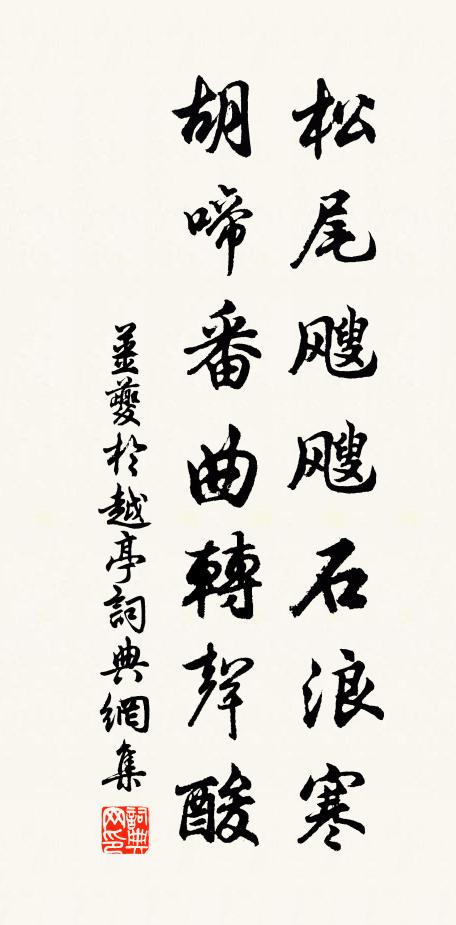 松尾颼颼石浪寒
胡啼番曲轉聲酸
姜夔於越亭詞典網集
詞典网印